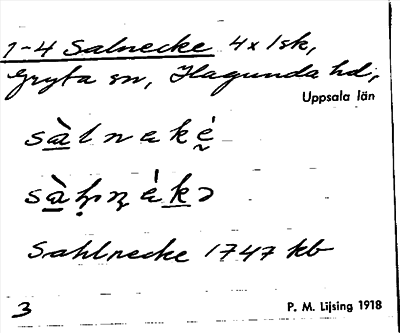 1-4 Salnecke 4 x 1sk,
Gryta sn, Hagunda hd,
Uppsala län
Sahlnecke 1747 kb
3
P. M. Lijsing 1918